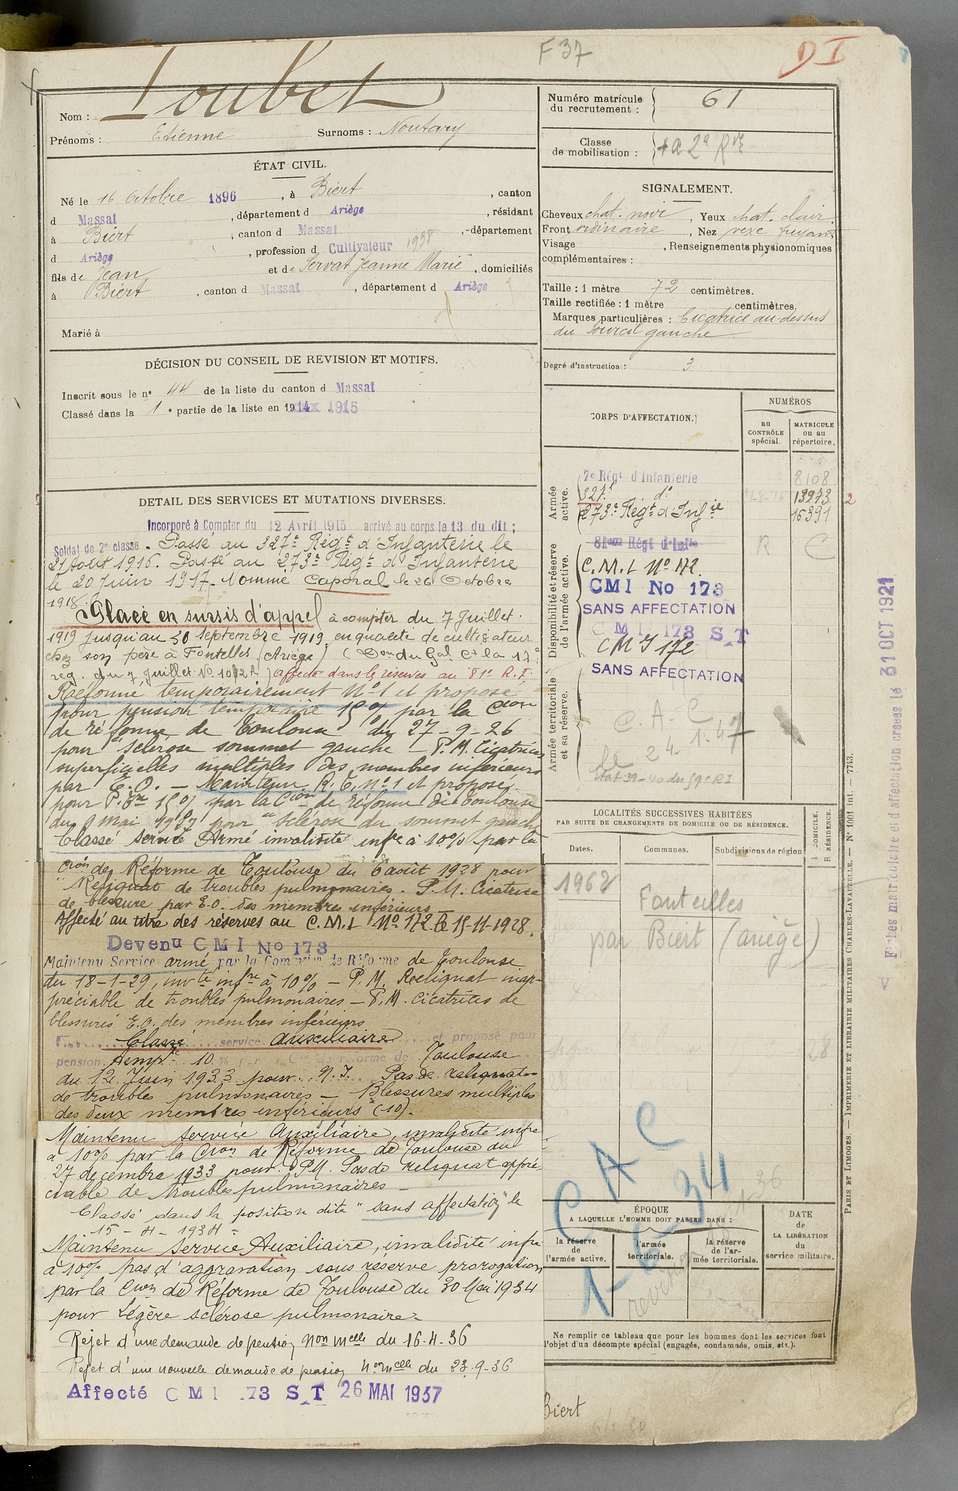 F 37
D I
Nom : Loubet
Prénoms : Etienne Surnoms : Noutary
ÉTAT CIVIL.
Né le 16 Octobre 1896, à Biert, canton
d Massat, département d Ariège, résidant
à Biert, canton d Massat, département
d Ariège, profession d Cultivateur 1938
fils de Jean et de Servat Jeanne Marie, domiciliés
à Biert, canton d Massat, département d Ariège
Marié à
DÉCISION DU CONSEIL DE REVISION ET MOTIFS.
Inscrit sous le n° 44 de la liste du canton d Massat
Classé dans la 1e partie de la liste en 1915
DETAIL DES SERVICES ET MUTATIONS DIVERSES.
Incorporé à Compter du 12 Avril 1915 arrivé au corps le 13 du dit ;
Soldat de 2e classe. Passé au 327e Régt d'Infanterie le
21 Août 1916. Passé au 273e Régt d'Infanterie
le 20 Juin 1917. Nommé Caporal le 26 Octobre
1918.
Placé en sursis d'appel à compter du 7 Juillet
1919 jusqu'au 30 septembre 1919, en qualité de cultivateur
chez son père à Fontelles (Ariège) (Don du Gal Ct la 17e
reg. du 7 juillet N° 10121) affecté dans les réserves au 81e R.I.
Réformé temporairement N°1 et proposé
pour pension temporaire 15% par la Cion
de réforme de Toulouse du 27-9-26
pour sclérose sommet gauche - P.M. Cicatrices
superficielles multiples des membres inférieurs
par E.O. - Maintenu R.T. N°1 et proposé
pour P. Tre 15% par la Cion de réforme de Toulouse
du 9 mai 1927 pour sclérose du sommet gauche
Classé service Armé invalidité infre à 10% par la
Cion de Réforme de Toulouse du 6 août 1928 pour
Reliquat de troubles pulmonaires. P.M. Cicatrice
de blessure par E.O. des membres inférieurs
Affecté au titre des réserves au C.M.I N° 172 le 15-11-1928.
Devenu CMI No 173
Maintenu Service armé par la Comon de Réforme de Toulouse
du 18-1-29, invté infre à 10% - P.M. Reliquat inap-
préciable de troubles pulmonaires - P.M. cicatrices de
blessures E.O. des membres inférieurs
Classé service auxiliaire et proposé pour
pension temp. 10 % par la Con de réforme de Toulouse
du 12 Juin 1933 pour N.I. Pas de reliquat
de troubles pulmonaires - Blessures multiples
des deux membres inférieurs (-10).
Maintenu Service Auxiliaire, invalidité infre
à 10% par la Cion de Réforme de Toulouse du
27 décembre 1933 pour P.M. Pas de reliquat appré-
ciable de troubles pulmonaires
Classé dans la position dite "sans affectation" le
15-4-1934
Maintenu Service Auxiliaire, invalidité infre
à 10% pas d'aggravation sous réserve prorogation
par la Cion de Réforme de Toulouse du 30 Mai 1934
pour Légère sclérose pulmonaire
Rejet d'une demande de pension Non mcelle du 16-4-36
Rejet d'une nouvelle demande de pension Nonmelle du 23-9-36
Affecté CMI 173 S.T 26 MAI 1937
Numéro matricule du recrutement : 61
Classe de mobilisation : 2e Rve
SIGNALEMENT.
Cheveux chat. noir, Yeux chat. clair
Front ordinaire, Nez vexe fuyant
Visage , Renseignements physionomiques
complémentaires :
Taille : 1 mètre 72 centimètres.
Taille rectifiée : 1 mètre centimètres.
Marques particulières : Cicatrice au-dessus
du sourcil gauche
Degré d'instruction : 3
CORPS D'AFFECTATION.
NUMÉROS
au CONTRÔLE spécial.
MATRICULE ou au répertoire.
Armée active.
7e Régt d'Infanterie 8108
327e do 13973
273e Régt d'Infie 16391
2
Disponibilité et réserve de l'armée active.
81eme Régt d'Infie R C
C.M.I N° 172.
CMI No 173
SANS AFFECTATION
CMI 173 S T
CMI 172
SANS AFFECTATION
Armée territoriale et sa réserve.
C.A.C
le 24.1.47
LOCALITÉS SUCCESSIVES HABITÉES
PAR SUITE DE CHANGEMENTS DE DOMICILE OU DE RÉSIDENCE.
Dates. Communes. Subdivisions de région
D. DOMICILE. R. RÉSIDENCE.
1962 Fonteilles
par Biert (Ariège)
28
36
CAC
1-6-34
ÉPOQUE
A LAQUELLE L'HOMME DOIT PASSER DANS :
la réserve de l'armée active.
l'armée territoriale.
la réserve de l'armée territoriale.
DATE de LA LIBÉRATION du service militaire.
Ne remplir ce tableau que pour les hommes dont les services font
l'objet d'un décompte spécial (engagés, condamnés, omis, etc.).
Biert
PARIS ET LIMOGES. — IMPRIMERIE ET LIBRAIRIE MILITAIRES CHARLES-LAVAUZELLE. — N° 1001 int. — 7743.
Fiches matriculaire et d'affectation créées le 31 OCT 1921
V